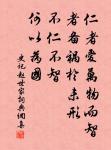 仁者愛萬物而智
者備禍於未形
不仁不智
何以為國
史記趙世家詞典網集